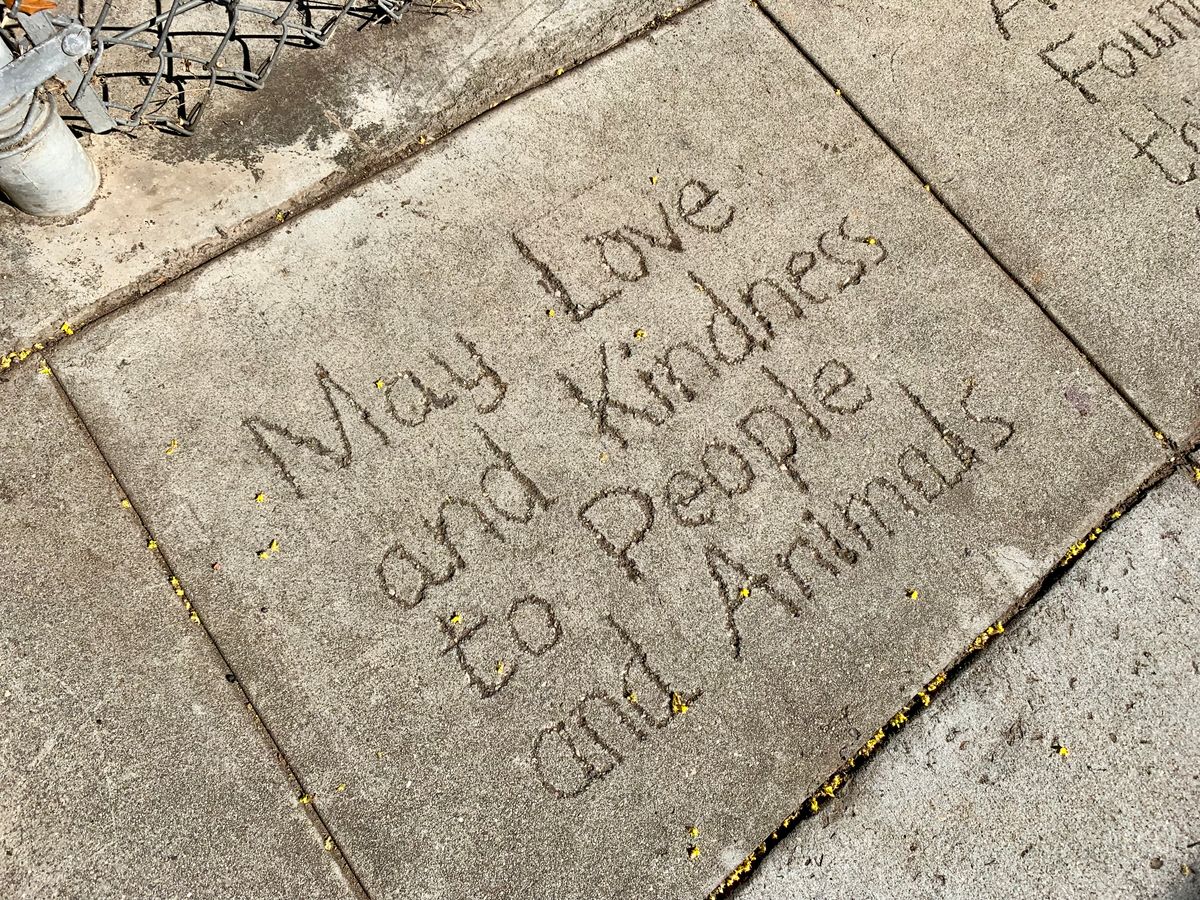 May Love
and Kindness
to People
and Animals